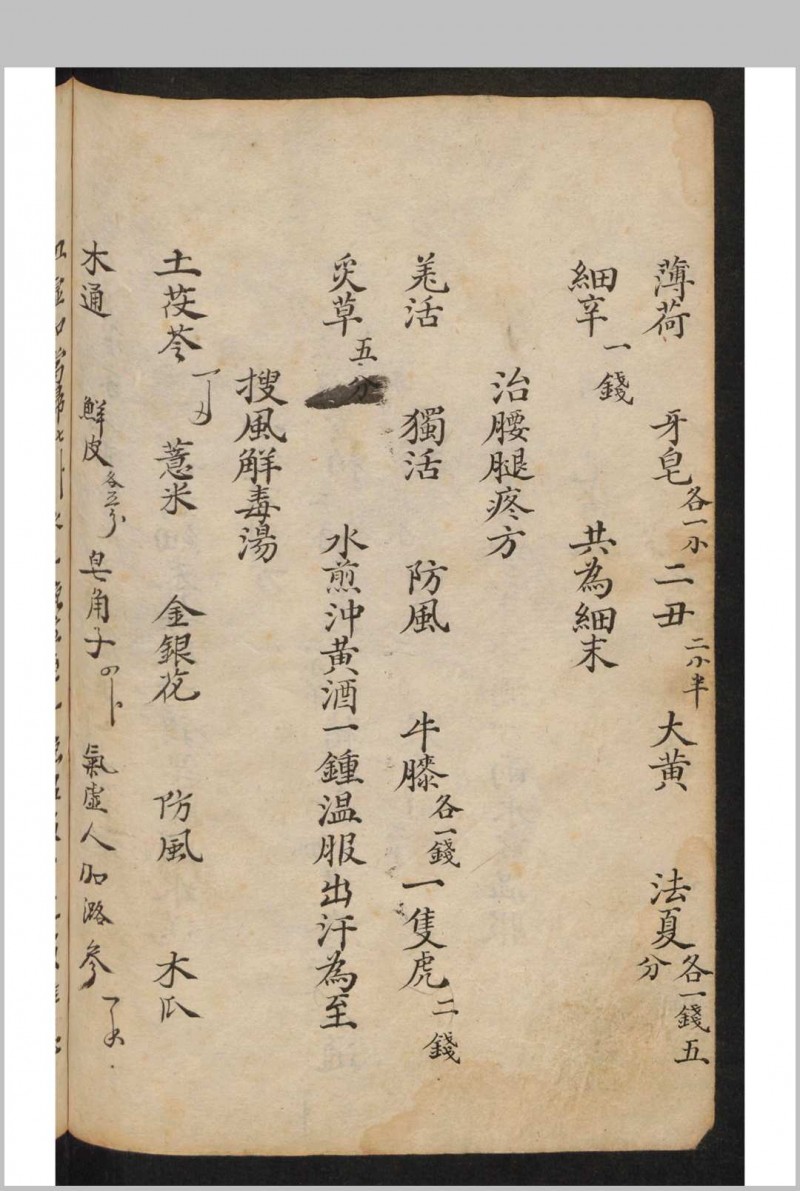 薄荷 牙皂各一小 二丑二小半 大黄 法夏各一錢五分
細辛一錢 共為細末
治腰腿疼方
羌活 獨活 防風 牛膝各一錢 一隻虎二錢
炙草五分 水煎沖黄酒一鍾温服出汗為至
搜風解毒湯
土茯苓 薏米 金銀花 防風 木瓜
木通 鮮皮各五分 皂角子 氣虛人加潞參